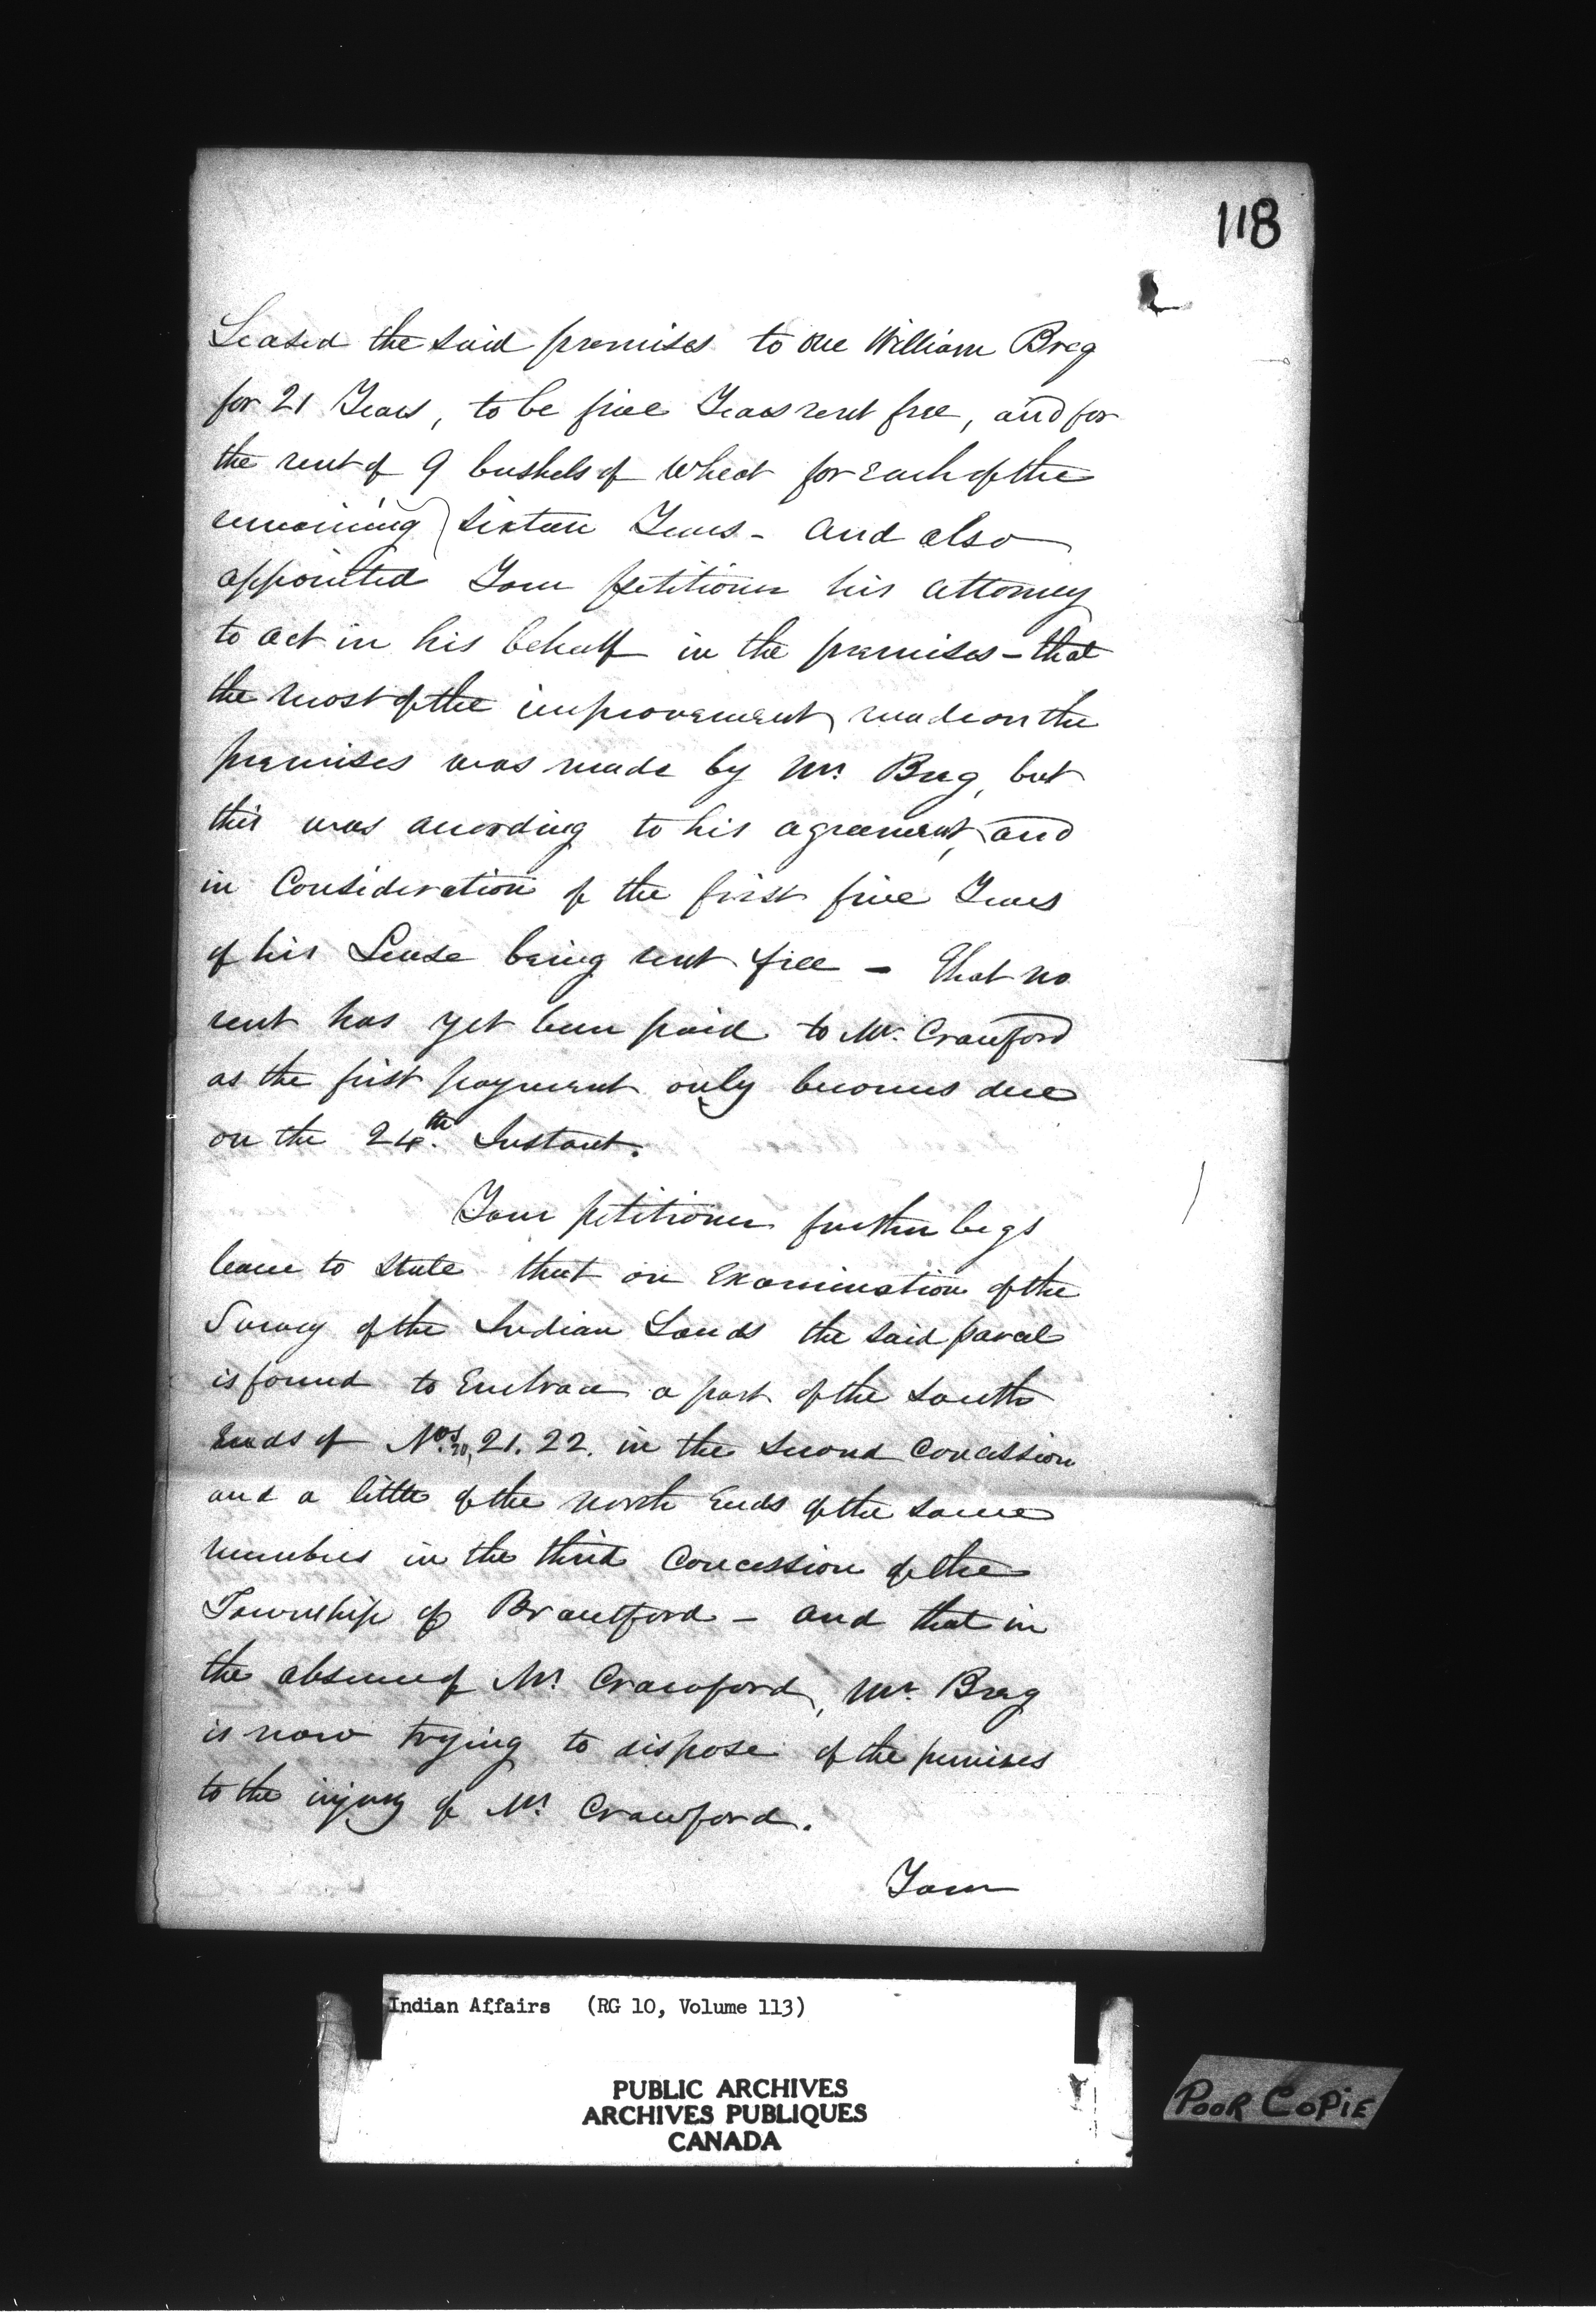 118
Leased the said premises to one William Breg
for 21 Years, to be five Years rent free, and for
the rent of 9 bushels of wheat for Each of the
remaining sixteen Years - and also
appointed Your petitioner his attorney
to act in his behalf in the premises - that
the most of the improvement made on the
premises was made by Mr Breg, but
this was according to his agreement, and
in Consideration of the first five Years
of his Lease being rent free - That no
rent has yet been paid to Mr. Crawford
as the first payment only becomes due
on the 24th. Instant.
Your petitioner further begs
leave to state that on Examination of the
Survey of the Indian Lands the said parcel
is found to Embrace a part of the South
Ends of Nos. 20, 21. 22. in the second Concession
and a little of the north Ends of the same
numbers in the third Concession of the
Township of Brantford - and that in
the absence of Mr Crawford, Mr. Breg
is now trying to dispose of the premises
to the injury of Mr Crawford.
Your
Indian Affairs (RG 10, Volume 113)
PUBLIC ARCHIVES
ARCHIVES PUBLIQUES
CANADA
POOR COPIE